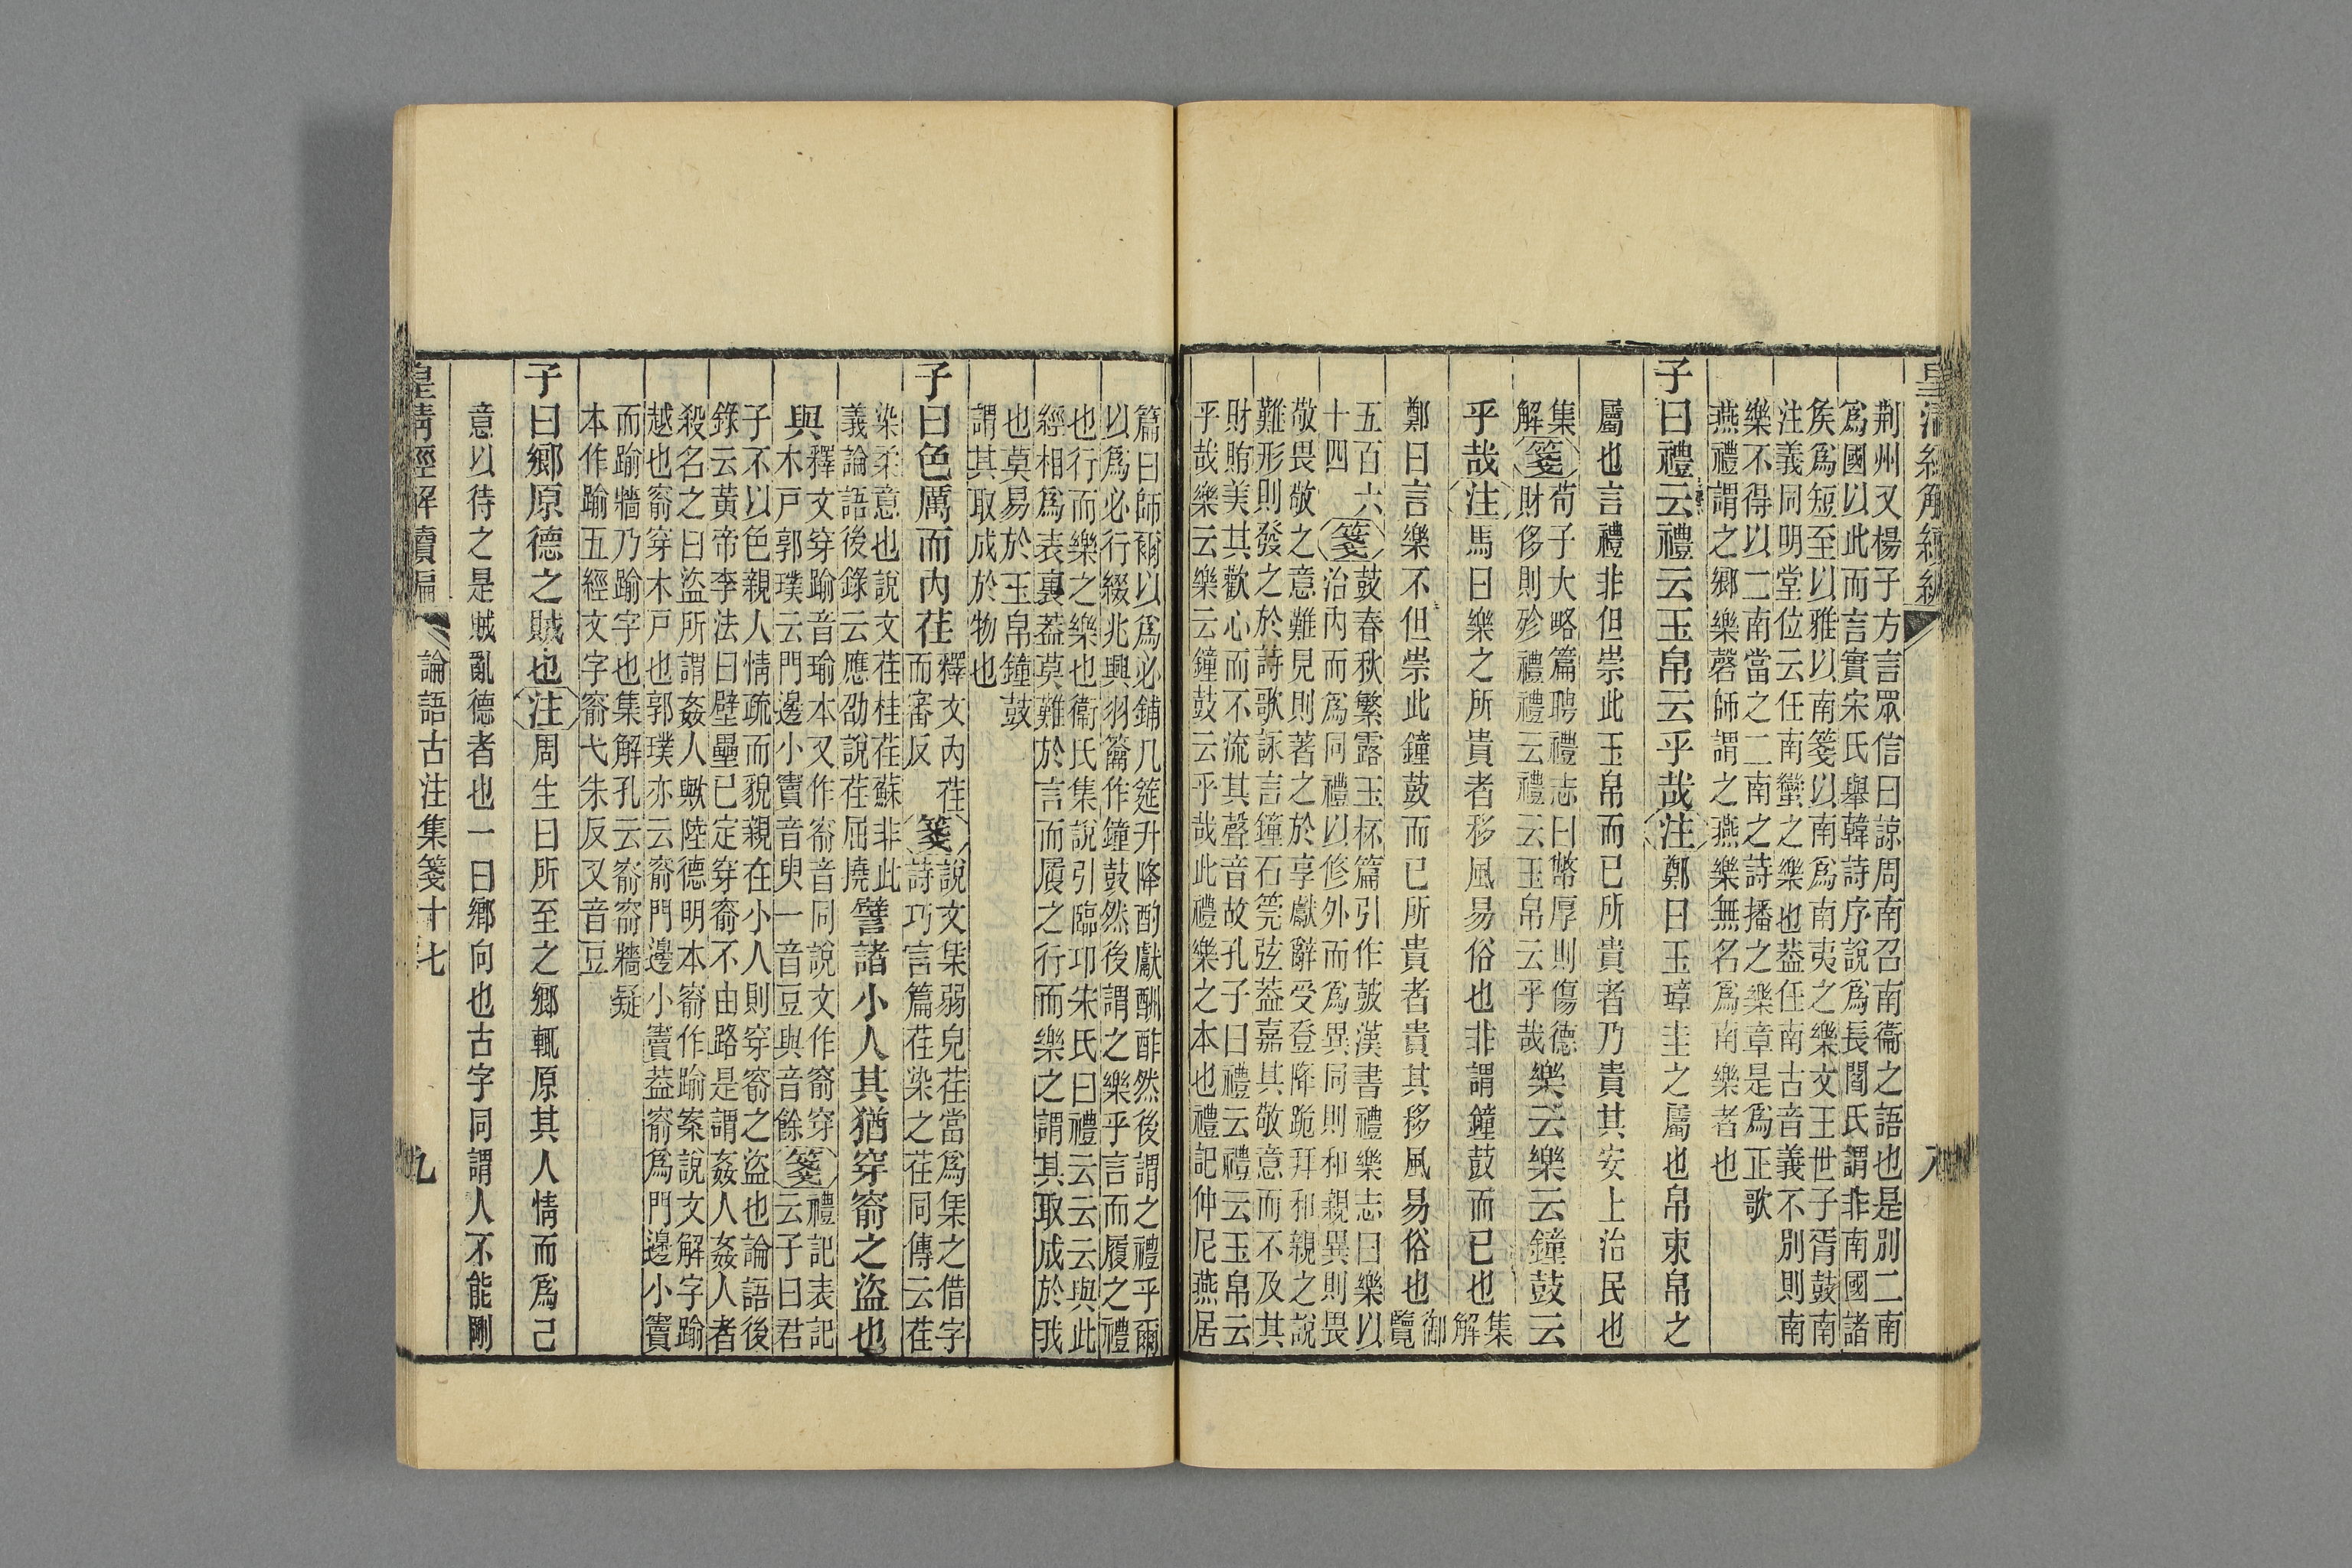 皇清經解續編
八
荆州又楊子方言眾信曰諒周南召南衞之語也是別二南
爲國以此而言實宋氏舉韓詩序說爲長閻氏謂非南國諸
矦爲短至以雅以南箋以南爲南夷之樂文王世子胥鼓南
注義同明堂位云任南蠻之樂也葢任南古音義不別則南
樂不得以二南當之二南之詩播之樂章是爲正歌
燕禮謂之鄉樂磬師謂之燕樂無名爲南樂者也
子曰禮云禮云玉帛云乎哉注鄭曰玉璋圭之屬也帛束帛之
屬也言禮非但崇此玉帛而已所貴者乃貴其安上治民也
集解箋荀子大略篇聘禮志曰幣厚則傷德
財侈則殄禮禮云禮云玉帛云乎哉樂云樂云鐘鼓云
乎哉注馬曰樂之所貴者移風易俗也非謂鐘鼓而已也集解
鄭曰言樂不但崇此鐘鼓而已所貴者貴其移風易俗也御覽
五百六十四箋鼓春秋繁露玉杯篇引作皷漢書禮樂志曰樂以
治內而爲同禮以修外而爲異同則和親異則畏
敬畏敬之意難見則著之於享獻辭受登降跪拜和親之說
難形則發之於詩歌詠言鐘石筦弦葢嘉其敬意而不及其
財賄美其歡心而不流其聲音故孔子曰禮云禮云玉帛云
乎哉樂云樂云鐘鼓云乎哉此禮樂之本也禮記仲尼燕居
篇曰師爾以爲必鋪几筵升降酌獻酬酢然後謂之禮乎爾
以爲必行綴兆興羽籥作鐘鼓然後謂之樂乎言而履之禮
也行而樂之樂也衞氏集說引臨卭宋氏曰禮云云云與此
經相爲表裏葢莫難於言而履之行而樂之謂其取成於我
也莫易於玉帛鐘鼓
謂其取成於物也
子曰色厲而內荏釋文內荏
而審反箋說文集弱皃荏當爲集之借字
詩巧言篇荏染之荏同傳云荏
染柔意也說文荏桂荏蘇非此
義論語後錄云應劭說荏屈撓譬諸小人其猶穿窬之盜也
與釋文穿踰音瑜本又作窬音同說文作窬穿
木戸郭璞云門邊小竇音臾一音豆與音餘箋禮記表記
云子曰君
子不以色親人情疏而貌親在小人則穿窬之盜也論語後
錄云黃帝李法曰壁壘已定穿窬不由路是謂姦人姦人者
殺名之曰盜所謂姦人歟陸德明本窬作踰案說文解字踰
越也窬穿木戸也郭璞亦云窬門邊小竇葢窬爲門邊小竇
而踰牆乃踰字也集解孔云窬窬牆疑
本作踰五經文字窬弋朱反又音豆
子曰鄉原德之賊也注周生曰所至之鄉輒原其人情而爲己
意以待之是賊亂德者也一曰鄉向也古字同謂人不能剛
皇清經解續編
論語古注集箋十七
九